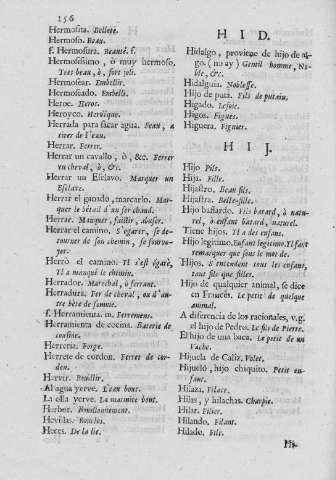 156
Hermosita. Bellete.
Hermoso. Beau.
f. Hermosura. Beauté. f.
Hermosissimo, ò muy hermoso.
Tres beau, ò, fort joli.
Hermosear. Embellir.
Hermoseado. Embelli.
Heroe. Heros.
Heroyco. Heroïque.
Herrada para sacar agua. Seau, a
tirer de l'eau.
Herrar. Ferrer.
Herrar un cavallo, ò, &c. Ferrer
un cheval, ò, &c.
Herrar un Esclavo. Marquer un
Esclave.
Herrar el ganado, marcarlo. Mar-
quer le bétail d'un fer chaud.
Herrar. Manquer, faillir,
Herrar el camino. S'egarer, se de-
tourner de son chemin, se fourvo-
yer.
Herrò el camino. Il s'est égaré,
Il a manqué le chemin.
Herrador. Marechal, ò ferrant.
Herradura. Fer de cheval, ou d'au-
tre bête de somme.
f. Herramienta. m. Ferrement.
Herramienta de cocina. Baterie de
cuisine.
Herreria. Forge.
Herrete de cordon. Ferret de cor-
don.
Hervir. Bouillir.
Al agua yerve. L'eau bout.
La olla yerve. La marmite bout.
Hervor. Bouillonnement.
Hevillas. Boucles.
Heces. De la lie.
HID.
Hidalgo, proviene de hijo de al-
go. (no ay) Gentil homme, No-
ble, &c.
Hidalguia. Noblesse.
Hijo de puta. Fils de putain.
Higado. Lefoie.
Higos. Figues.
Higuera. Figuier.
HIJ.
Hijo. Fils.
Hija. Fille.
Hijastro. Beau fils.
Hijastra. Belle-fille.
Hijo bastardo. Fils batard, ò natu-
rel, ò enfant batard, naturel.
Tiene hijos. Il a des enfans.
Hijo legitimo. Enfant legitime. Il faut
remarquer que sous le mot de.
Hijos, S'entendent tous les enfans,
tant fils que filles.
Hijo de qualquier animal, se dice
en Francés. Le petit de quelque
animal.
A diferencia de los racionales, v.g.
el hijo de Pedro. Le fils de Pierre.
El hijo de una baca. Le petit de un
Vache.
Hijuela de Caliz. Volet.
Hijueló, hijo chiquito. Petit en-
fant.
Hilaza. Filace.
Hilas, y hilachas. Charpie.
Hilar. Filer.
Hilando. Filant.
Hilado. Filé.